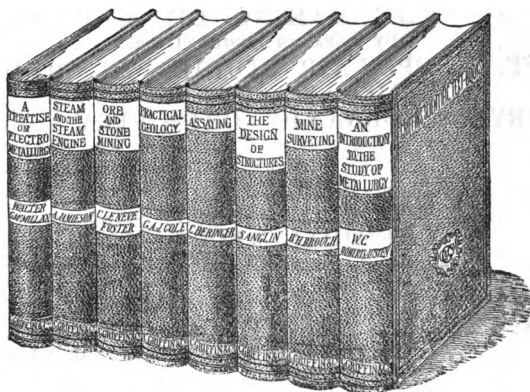 A
TREATISE
ON
ELECTRO
METALLURGY
WALTER
G. MCMILLAN
STEAM
AND THE
STEAM
ENGINE
A. JAMIESON
ORE
AND
STONE
MINING
C. LE NEVE
FOSTER
PRACTICAL
GEOLOGY.
G.A.J. COLE
C. GRIFFIN & Co
ASSAYING
C. BERINGER
C. GRIFFIN & Co
THE
DESIGN
OF
STRUCTURES
S. ANGLIN
C. GRIFFIN & Co
MINE
SURVEYING
B.H. BROUGH
C. GRIFFIN & Co
AN
INTRODUCTION
TO THE
STUDY OF
METALLURGY
W.C.
ROBERTS-AUSTEN
C. GRIFFIN & Co